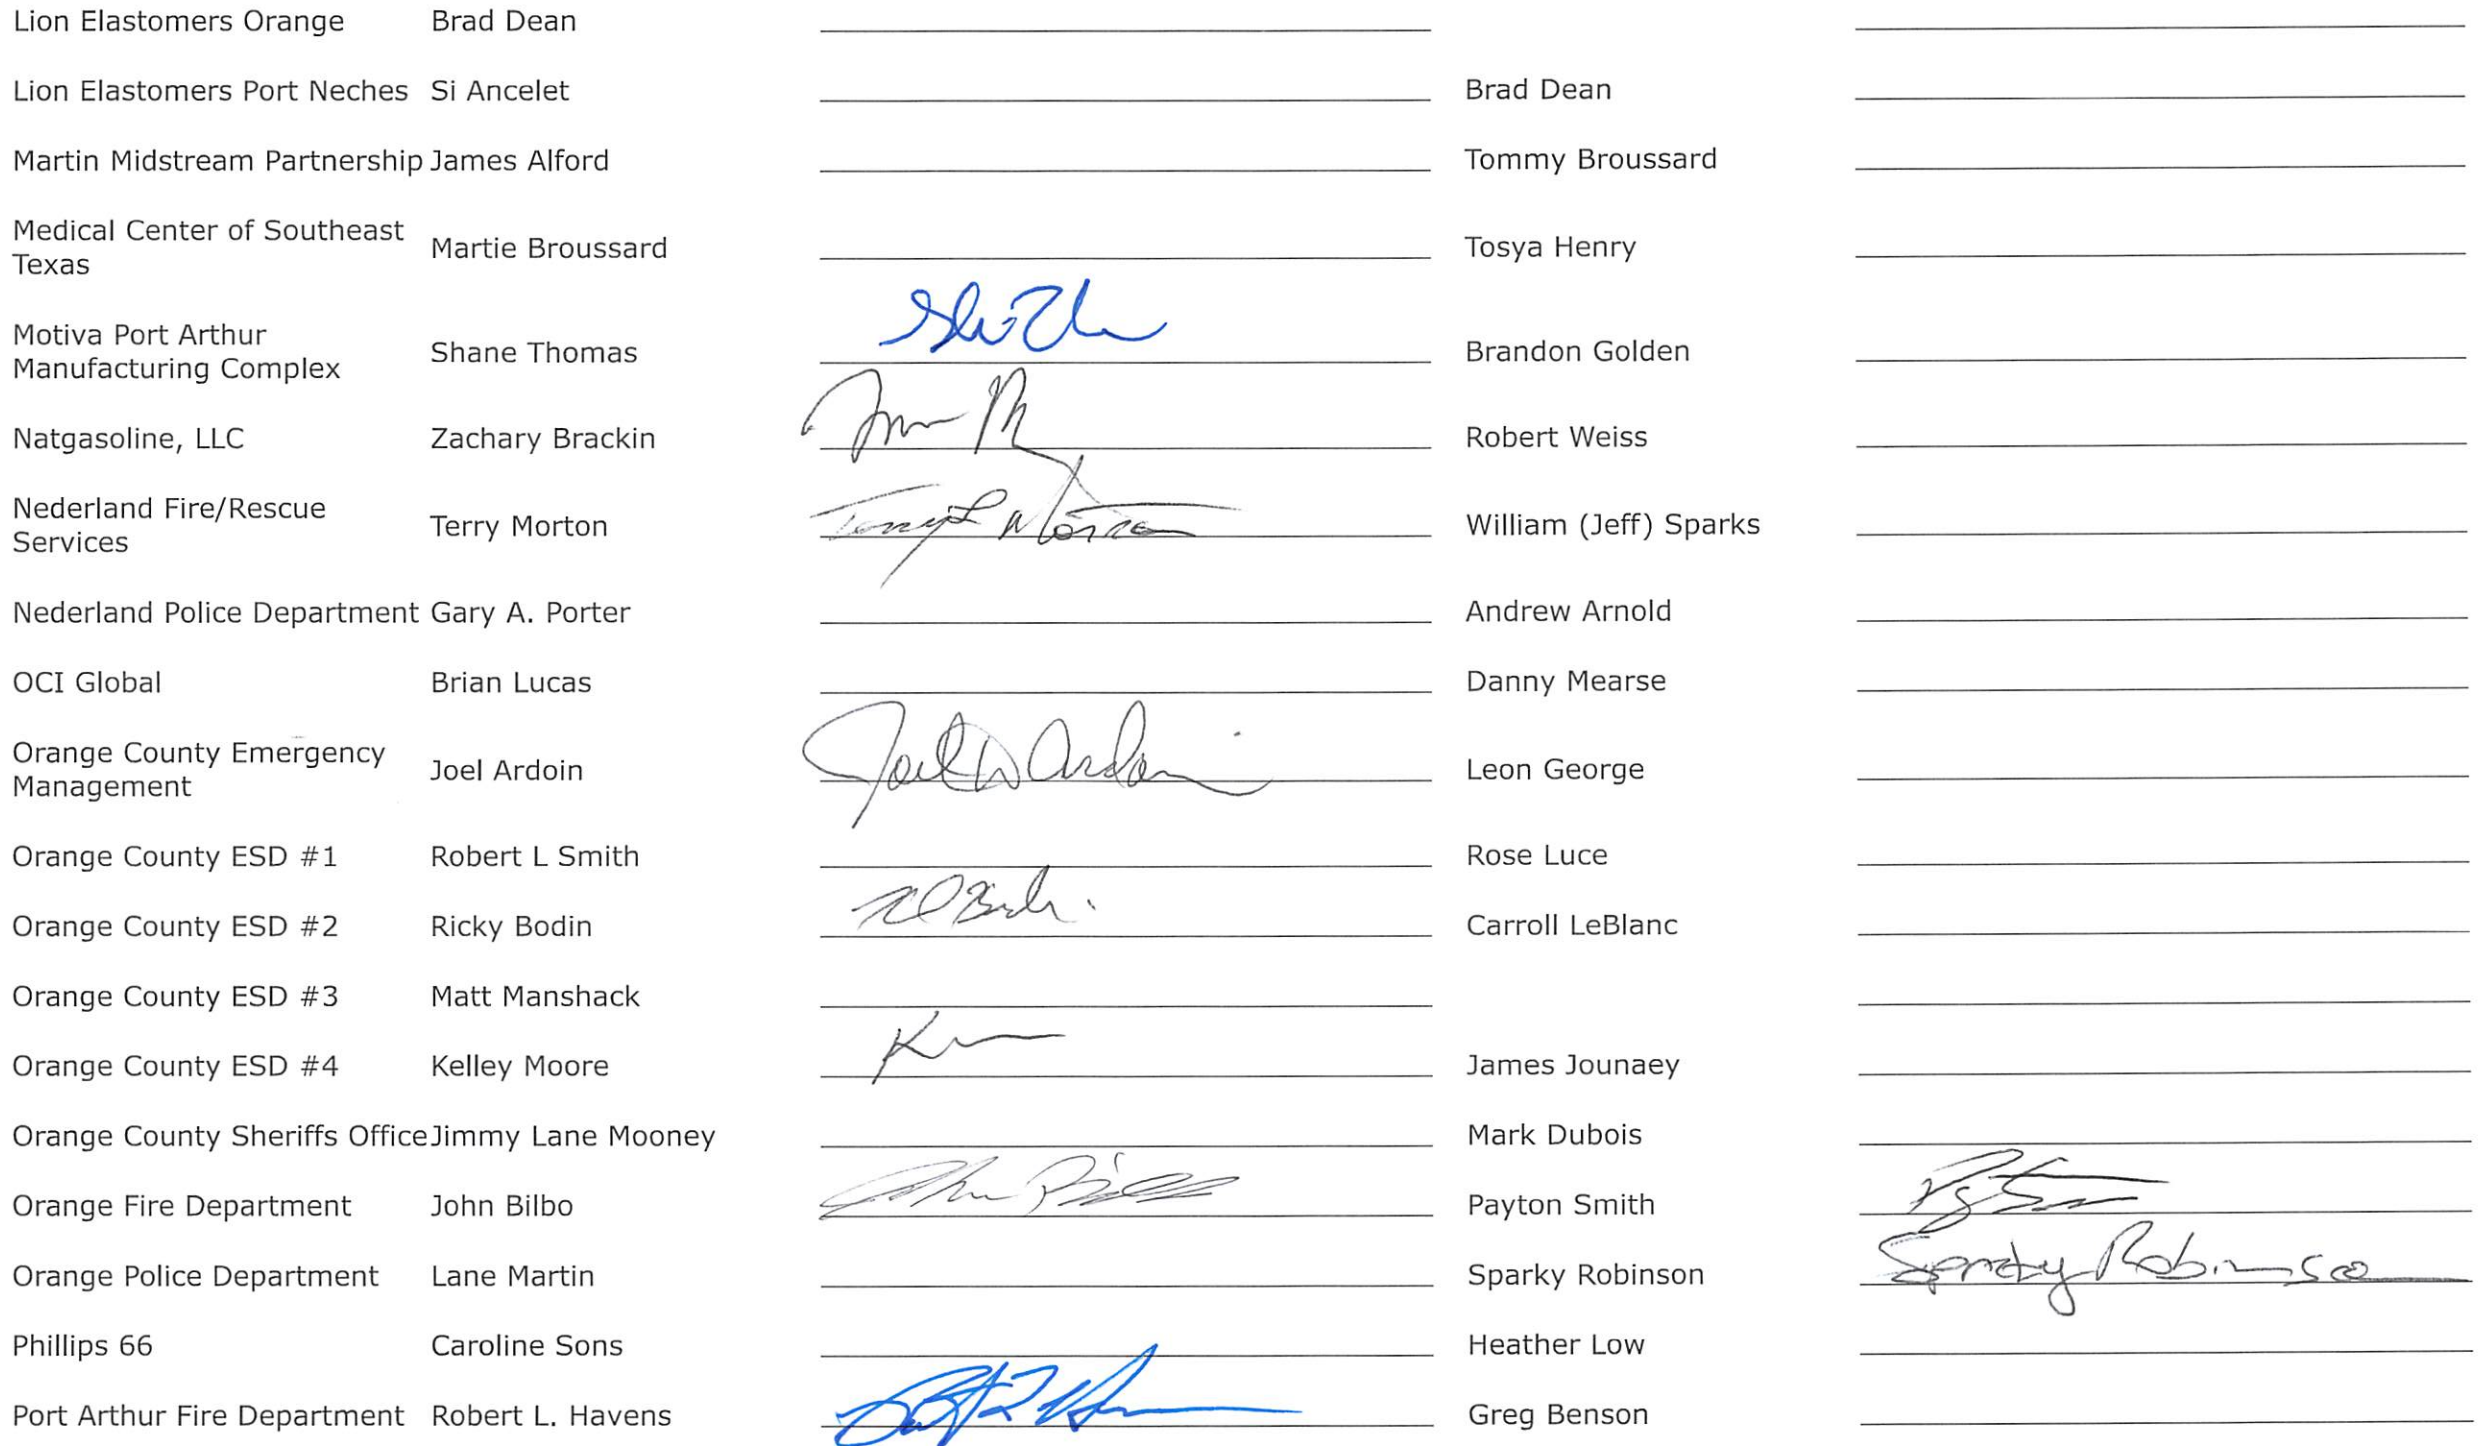 Lion Elastomers Orange Brad Dean
Lion Elastomers Port Neches Si Ancelet Brad Dean
Martin Midstream Partnership James Alford Tommy Broussard
Medical Center of Southeast
Texas Martie Broussard Tosya Henry
Motiva Port Arthur
Manufacturing Complex Shane Thomas Brandon Golden
Natgasoline, LLC Zachary Brackin Robert Weiss
Nederland Fire/Rescue
Services Terry Morton Terry L Morton William (Jeff) Sparks
Nederland Police Department Gary A. Porter Andrew Arnold
OCI Global Brian Lucas Danny Mearse
Orange County Emergency
Management Joel Ardoin Joel W Ardoin Leon George
Orange County ESD #1 Robert L Smith Rose Luce
Orange County ESD #2 Ricky Bodin Carroll LeBlanc
Orange County ESD #3 Matt Manshack
Orange County ESD #4 Kelley Moore James Jounaey
Orange County Sheriffs Office Jimmy Lane Mooney Mark Dubois
Orange Fire Department John Bilbo Payton Smith
Orange Police Department Lane Martin Sparky Robinson Sparky Robinson
Phillips 66 Caroline Sons Heather Low
Port Arthur Fire Department Robert L. Havens Greg Benson